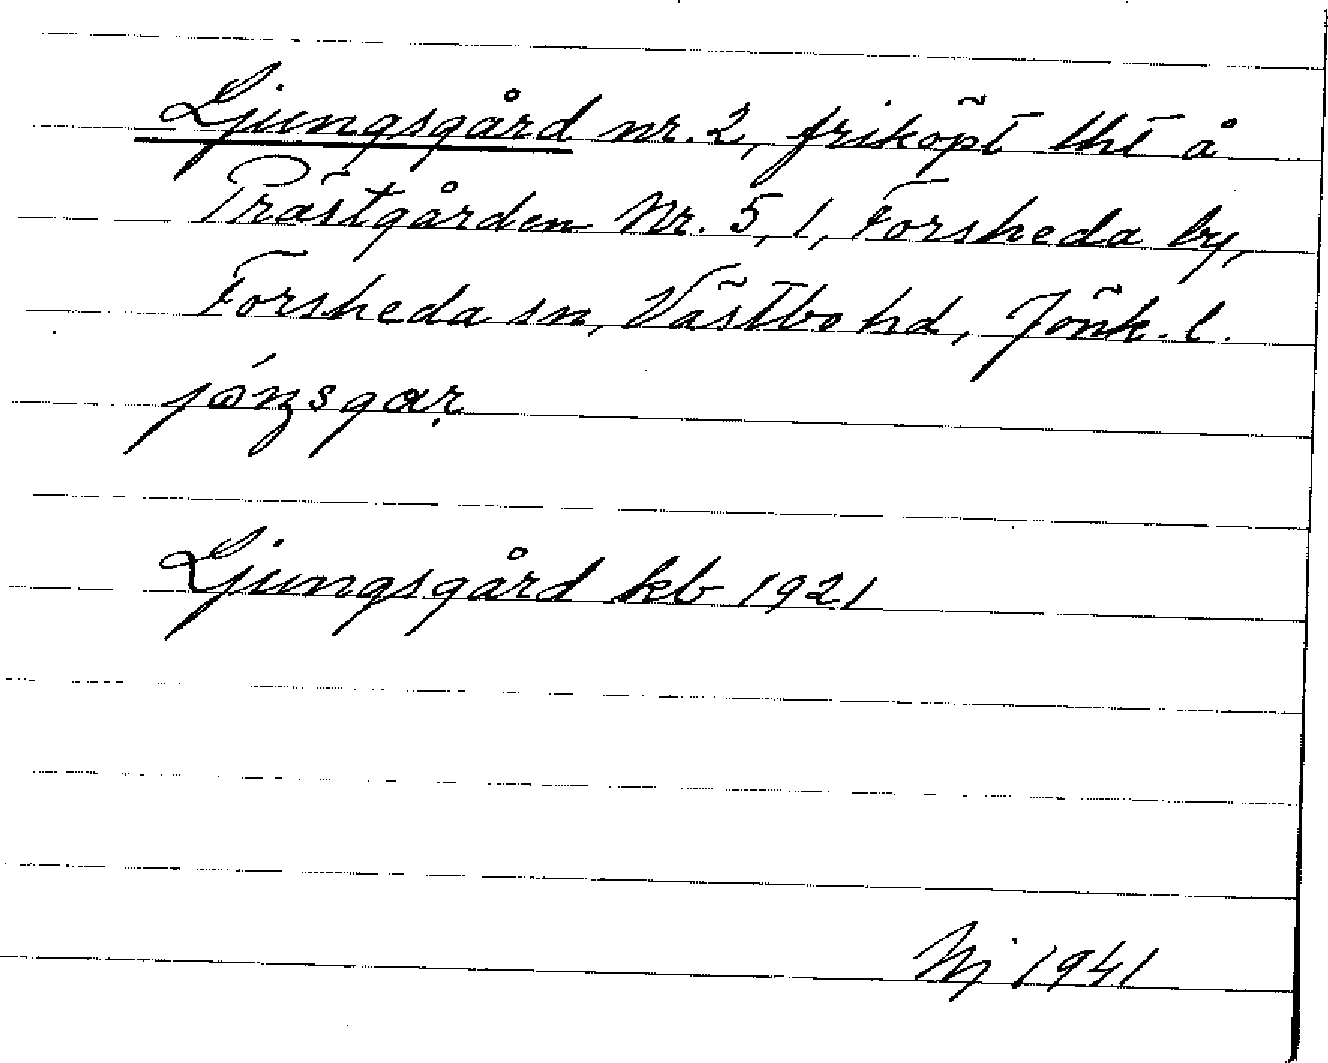 Ljungsgård nr. 2, friköpt lht å
Prästgården Nr. 5,1, Forsheda by,
Forsheda sn, Västbo hd, Jönk. l.
Ljungsgård kb 1921
1941